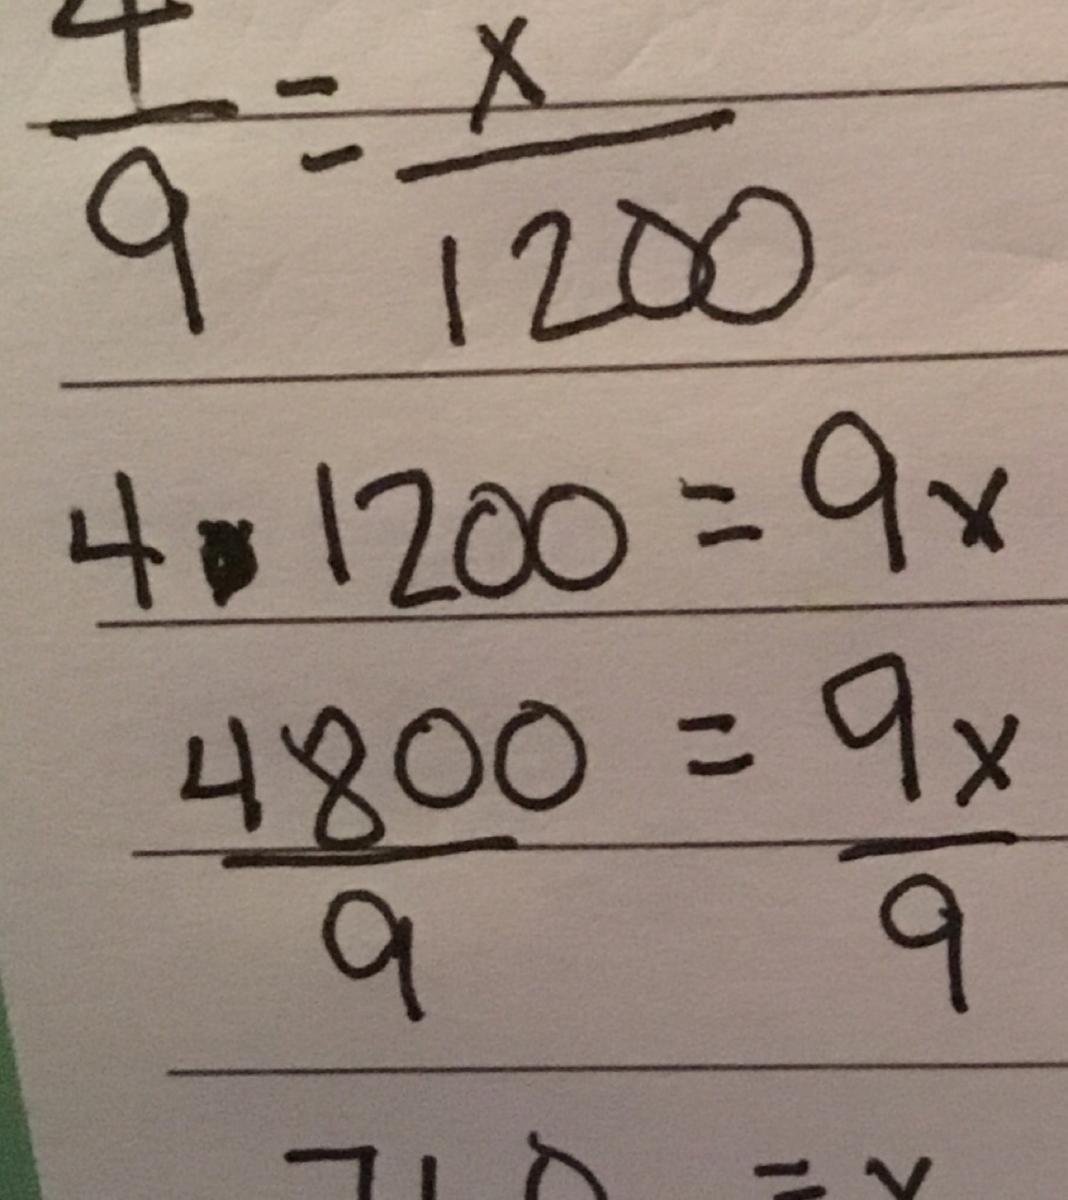 4/9 = x/1200
4 · 1200 = 9x
4800/9 = 9x/9
= x